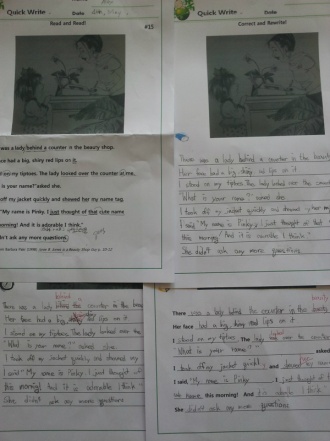 Quick Write
Date
Read and Read!
#15
was a lady behind a counter is the beauty shop.
face had a big, shiny red lips on it.
on my tiptoes. The lady looked over the counter at me.
is your name?" asked she.
off my jacket quickly and showed her my name tag.
"My name is Pinky. I just thought of that cute name
morning! And it is adorable I think."
didn't ask any more questions.
Quick Write
Date
Correct and Rewrite!
There was a lady behind a counter is the beauty
Her face had a big, shiny red lips on it
I stand on my tiptoes. The lady looked over the counter
"What is your name?" asked she.
I took off my jacket quickly and showed her my
I said "My name is Pinky. I just thought of that
this morning! And it is adorable I think."
She didn't ask any more questions.
behind
There was a lady the counter is the beauty
Her face had a big, red lips on it
I stand on my tiptoes. The lady looked over the
"What is your name?" asked she.
I took off my jacket quickly and showed my
I said "My name is Pinky. I just thought of
this morning! And it is adorable I think."
She didn't ask any more questions
beauty
There was a lady behind the counter in the
Her face had a big shiny red lips on it
I on my tiptoes. The lady looked over the counter
What is your name" asked
I took off my jacket quickly, and showed my
I said, "My name is Pinky. I just thought of
this morning! And it's adorable I think"
She didn't ask any more questions